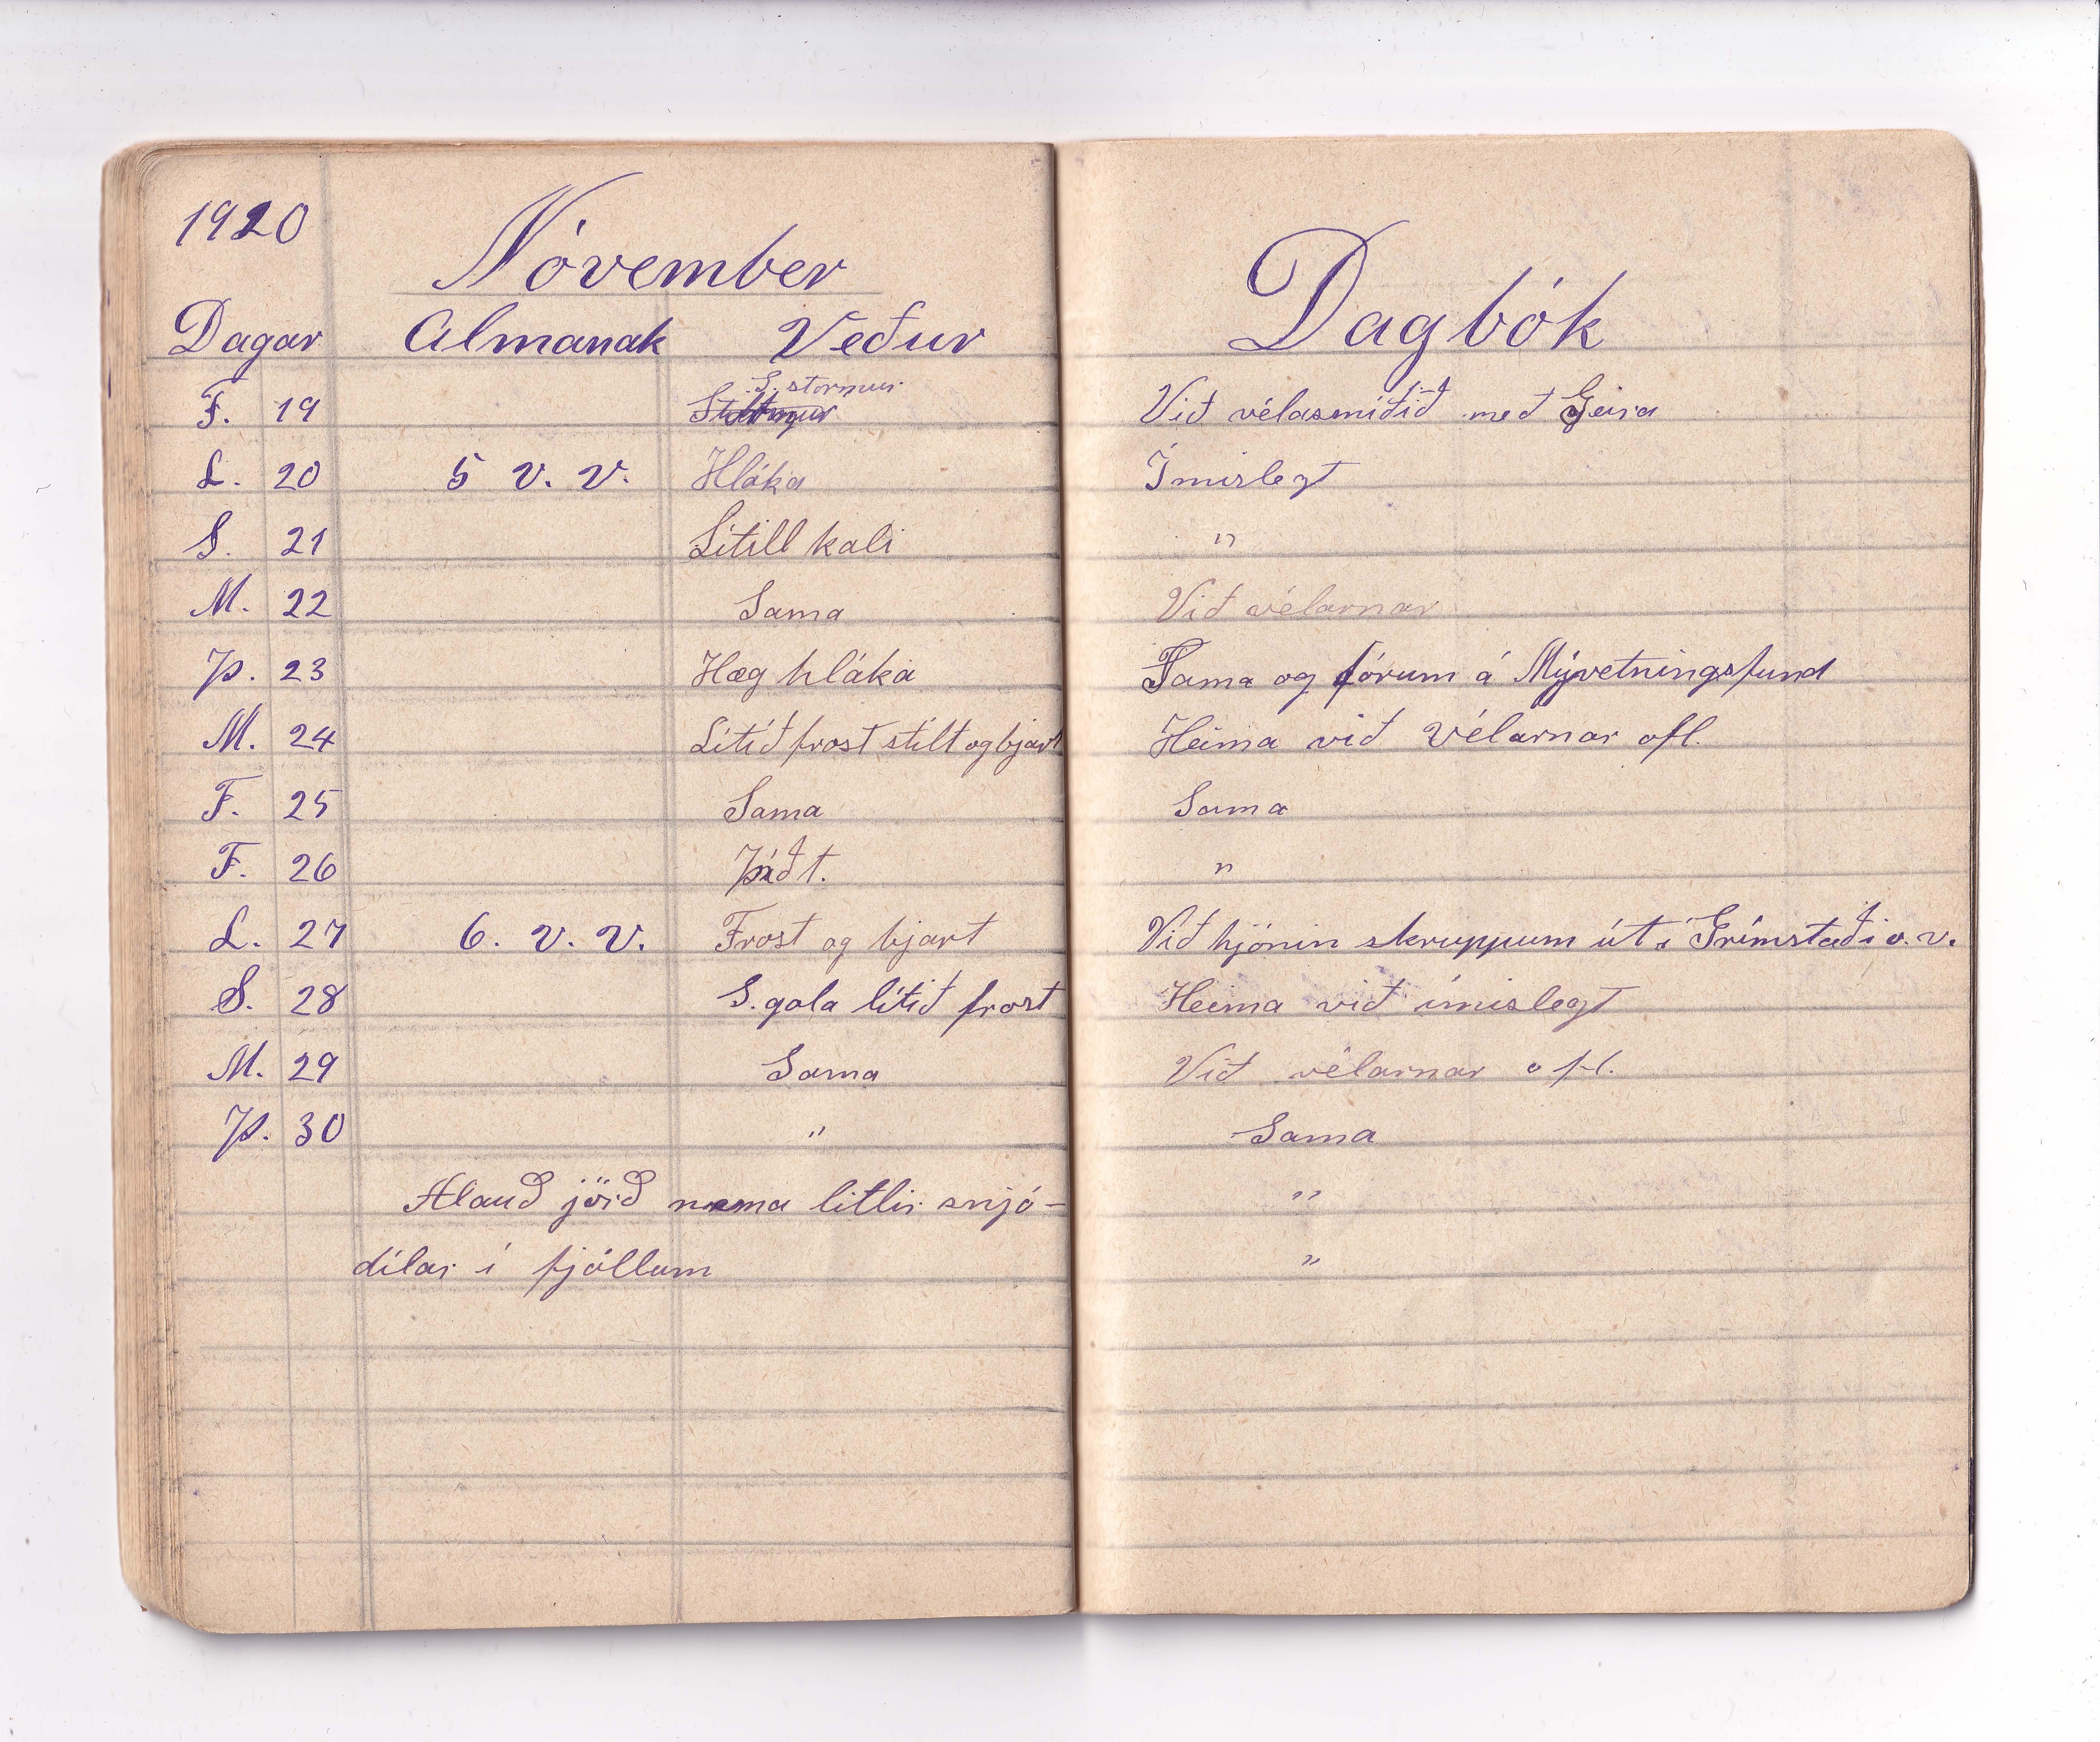 1920
Nóvember
Dagar Almanak Veður
Dagbók
S. stormur
F. 19 Við vélasmíðið með Geira
L. 20 5 v. v. Hláka Ímislegt
S. 21 Lítill kali "
M. 22 Sama Við vélarnar
Þ. 23 Hæg hláka Sama og fórum á Mývetningafund
M. 24 Lítið frost stilt og bjart Heima við vélarnar ofl.
F. 25 Sama Sama
F. 26 Þíðt. "
L. 27 6. v. v. Frost og bjart Við hjónin skruppum út í Grímstaði o. v.
S. 28 S. gola lítið frost Heima við ímislegt
M. 29 Sama Við vélarnar ofl.
Þ. 30 " Sama
Alauð jörð nema litlir snjó- "
dílar í fjöllum "